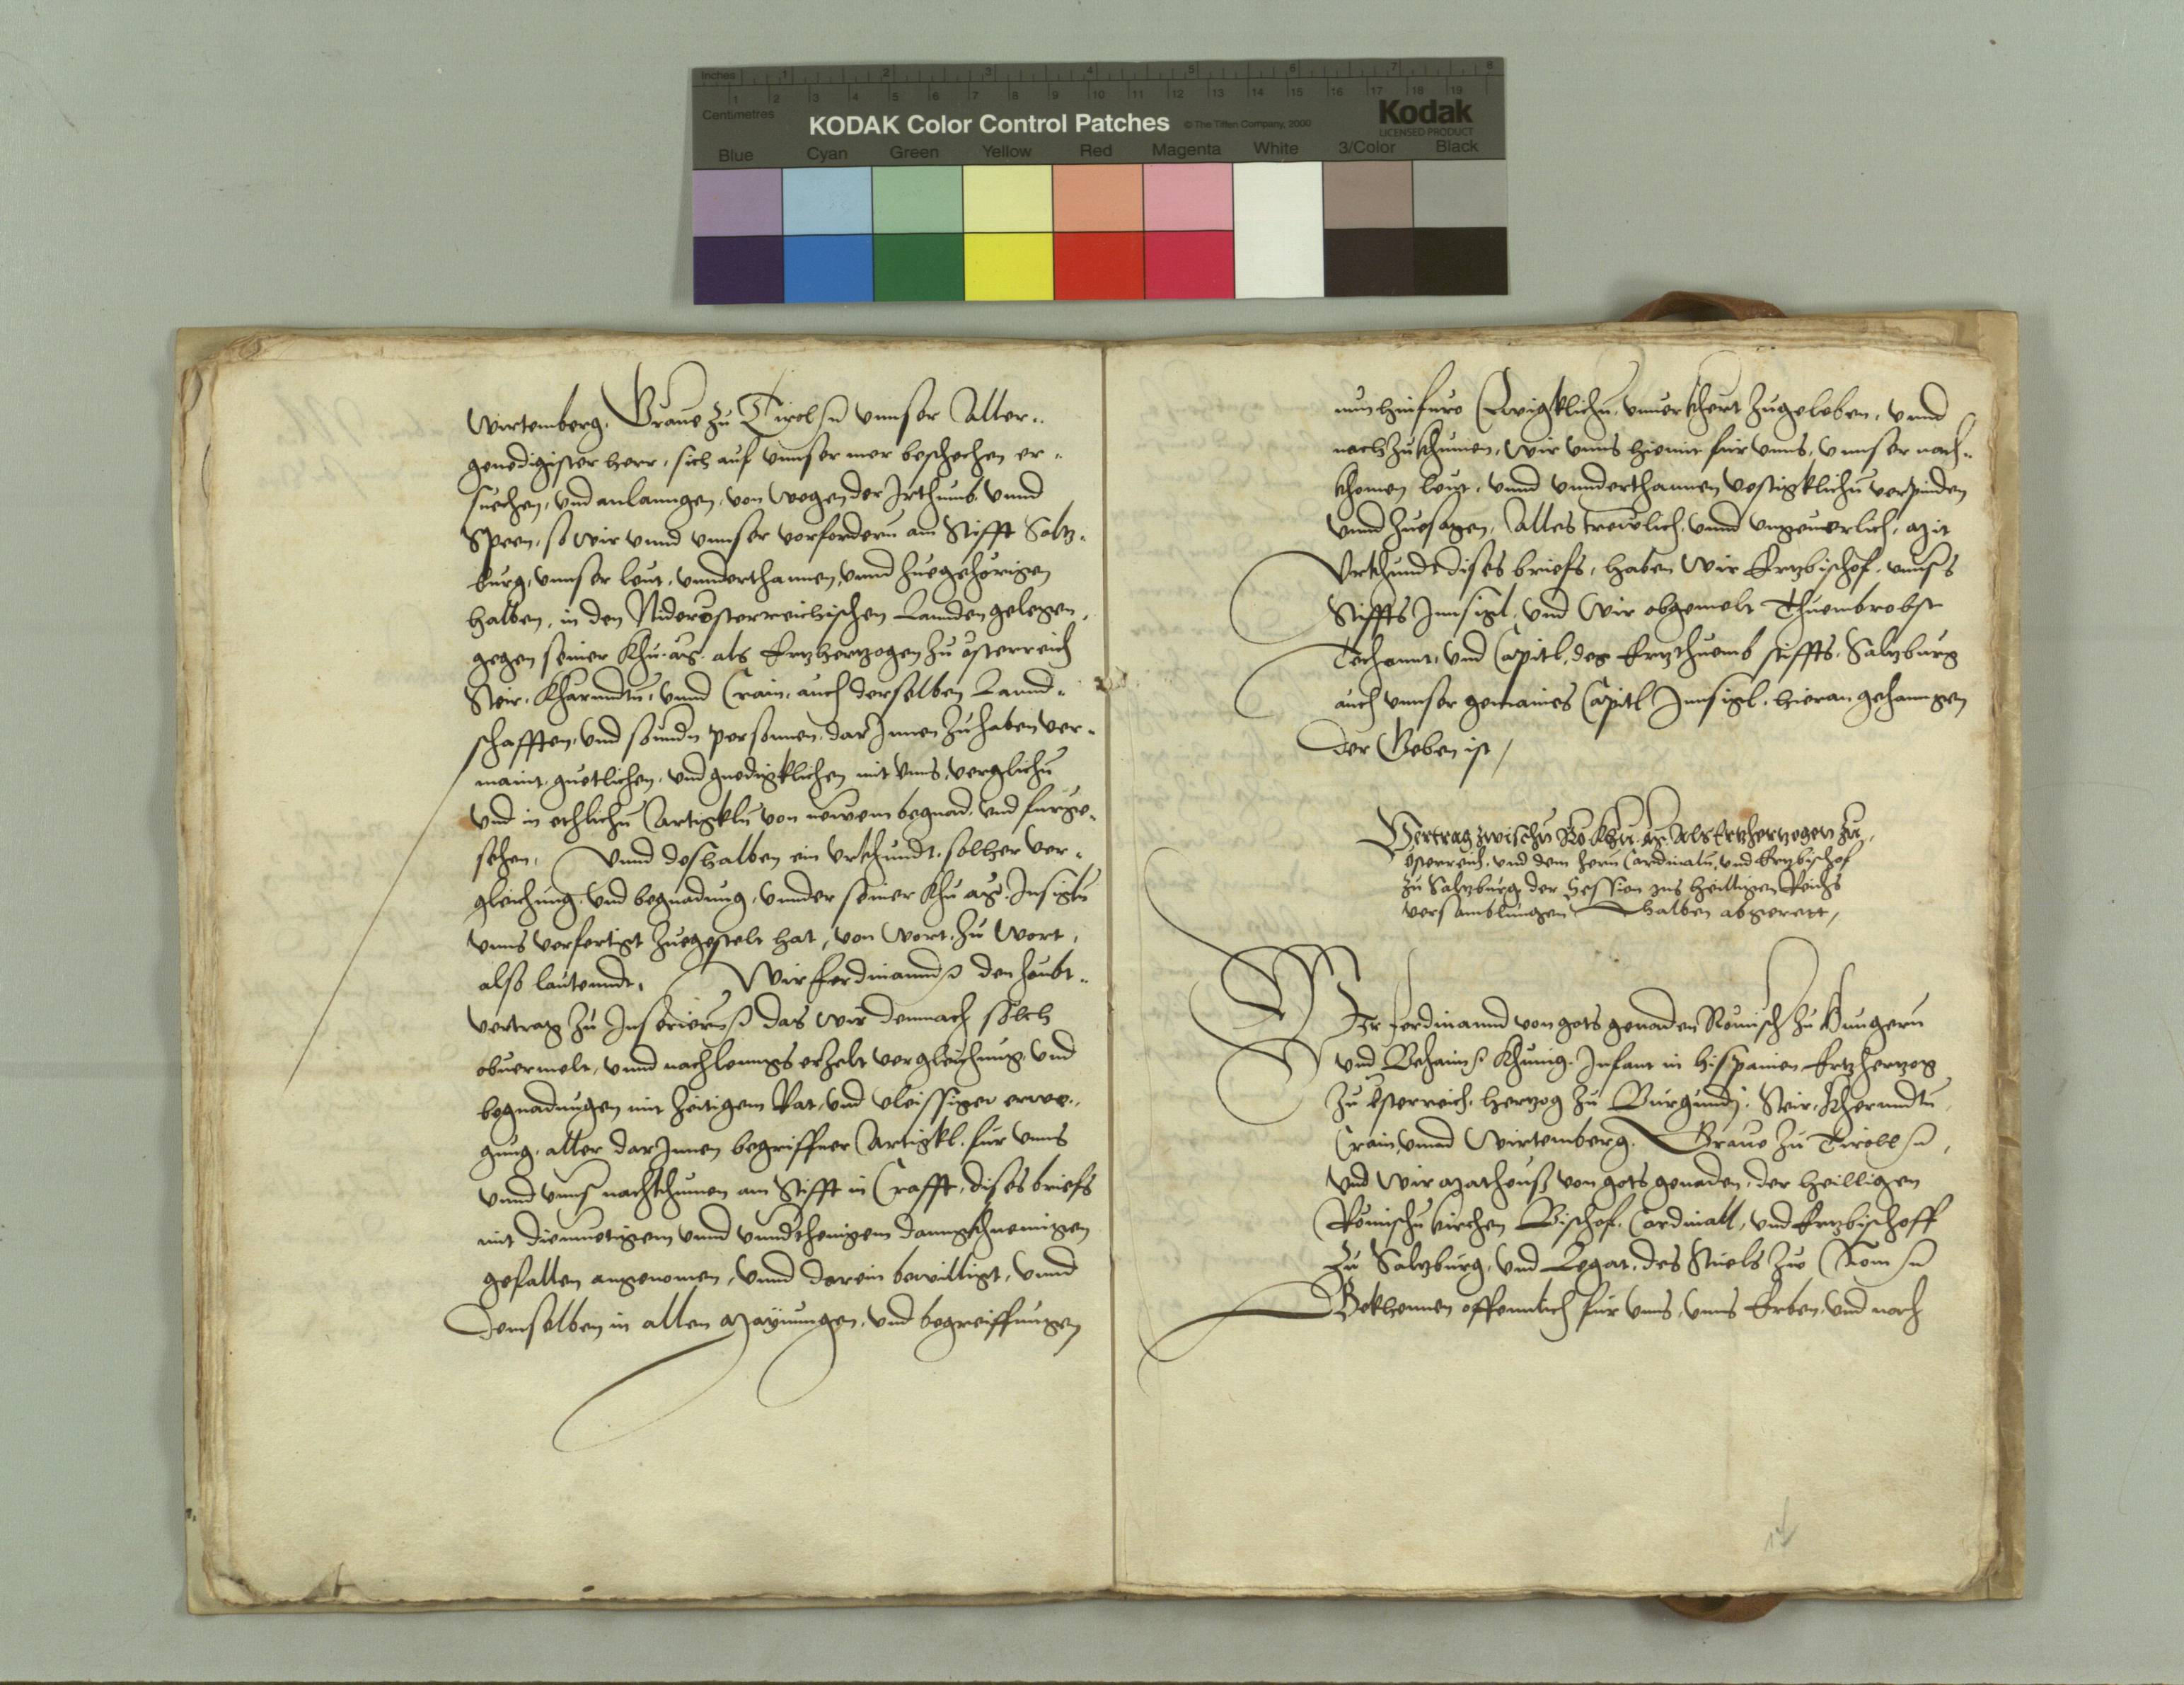 Inches 1 2 3 4 5 6 7 8
1 2 3 4 5 6 7 8 9 10 11 12 13 14 15 16 17 18 19
Centimetres
KODAK Color Control Patches © The Tiffen Company, 2000 Kodak
LICENSED PRODUCT
Blue Cyan Green Yellow Red Magenta White 3/Color Black
Wirtemberg, Graue zu Tirol vnnser Aller-
genedigister herr, sich auf vnnser mer beschechen er-
suechen, vnd anlanngen, von wegen der Irthumb, vnnd
Speen, so wir vnnd vnnser vorfordern am Stifft Saltz-
burg, vnnser leut, vnnderthannen, vnnd zuegehörigen
halben, in den Niderösterreichischen Lannden gelegen,
gegen seiner Khu. Mt. als Ertzhertzogen zu österreich
Steir, Kharndtn, vnnd Crain, auch derselben Lannd-
schafften, vnd sonndn personen, darInnen zuhaben ver-
maint, guetlichen, vnd gnedigklichen mit vnns, verglichn
vnd in etlichn Artigkln von newem begnad, vnd furge-
sehen, Vnnd deshalben ein vrkhundt, solher ver-
gleichung, vnd begnadung, vnnder seiner Khu. Mt. Insigln
vnns verfertigt zuegestelt hat, von Wort, zu Wort,
also lautenndt, Wir Ferdinannd den haubt-
vertrag zu Inserieren das wir demnach solch
obuermelt, vnnd nachlenngs erzelt vergleichung, vnd
begnadungen mit zeitigem Rat, vnd vleissiger erwe-
gung, aller darInnen begriffner Artigkl, fur vnns
vnnd vnns nachkhumen am Stifft in Crafft, dises briefs
mit diemuetigem vnnd vnndthenigem danngkhnemigen
gefallen angenomen, vnnd darein bewilligt, vnnd
demselben in allen Maÿnungen, vnd begreiffungen
nun hinfuro Ewigklichn, vnuerkhert zugeleben, vnnd
nachzukhumen, Wir vnns hiemit fur vnns, vnnser nach-
khomen leut, vnnd vnnderthannen vestigklichn verpinden
vnnd zuesagen, Alles trewlich, vnnd vngeuerlich, Mit
Vrkhundt dises briefs, haben Wir Ertzbischof, vnnsers
Stiffts Innsigl, vnd Wir obgemelt Thuembrobst
Techannt, vnd Capitl, des Ertzthuemb stiffts, Saltzburg
auch vnnser gemaines Capitl Innsigl, hieran gehanngen
Der Geben ist /
Vertrag zwischn Ro. Khu. Mt. Als Ertzhertzogen zu
österreich, vnd dem hern Cardinaln, vnd Ertzbischof
zu Saltzburg, der Session Ins heilligen Reichs
versamblungen halben abgerett,
Wir Ferdinannd von gots genaden Römisch, zu Hungern
vnd Behaim Khunig, Infant in Hispanien Ertzhertzog
zu österreich, Hertzog zu Burgundj, Steir, Kherndtn
Crain, vnnd Wirtemberg, Graue zu Tiroll,
Vnd Wir Matheuß von gots genaden, der heilligen
Römischn Kirchen Bischof, Cardinall, vnd Ertzbischoff
zu Saltzburg, vnd Legat, des Stuels zw Rom
Bekhennen offenntlich fur vnns, vnns Erben, vnd nach